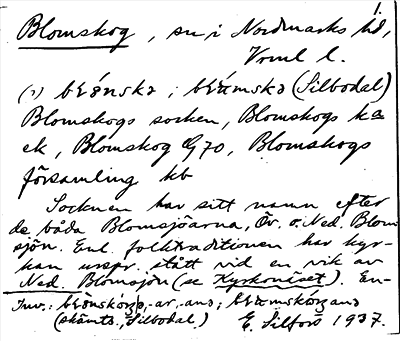 1.
Blomskog, sn i Nordmarks hd,
Vrml l.
(1) blónska; (Silbodal)
Blomskogs socken, Blomskogs ka
ek, Blomskog G 70, Blomskogs
församling kb
Socknen har sitt namn efter
de båda Blomsjöarna, Öv. o. Ned. Blom
sjön. Enl. folktraditionen har kyr-
kan urspr. stått vid en vik av
Ned. Blomsjön (se Kyrkonäset). En-
Inv.:
(skämts., Silbodal.) E. Silfors 1937.